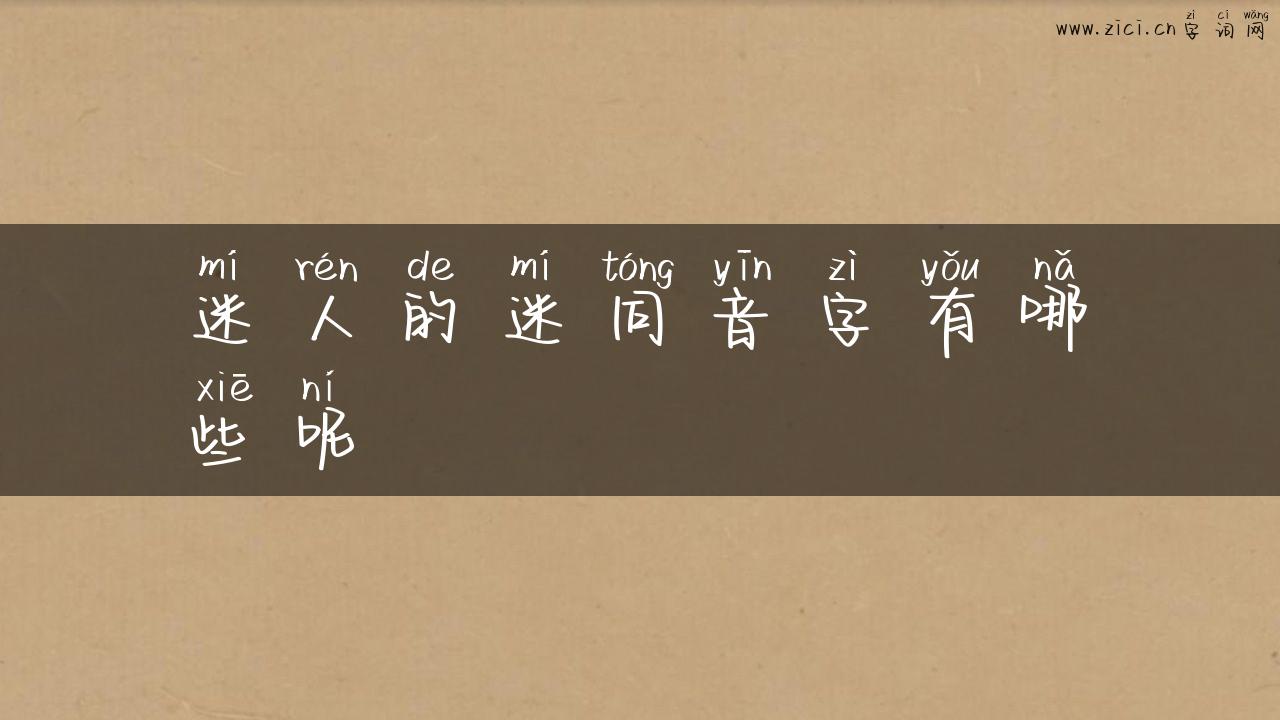 zì cí wǎng
www.zici.cn 字 词 网
mí rén de mí tóng yīn zì yǒu nǎ
迷 人 的 迷 同 音 字 有 哪
xiē ní
些 呢